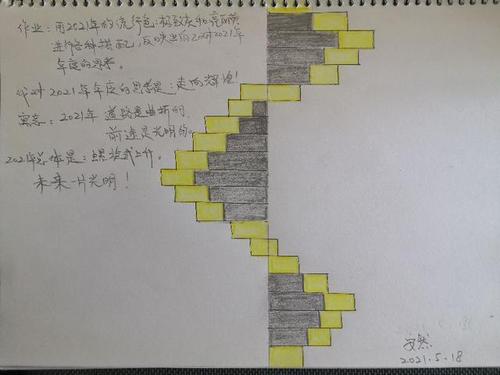 作业：用2021年的流行色：极致灰和亮丽黄
进行各种搭配，反映出你对2021年
年度的思考。
我对2021年年度的思想是：走向辉煌！
寓意：2021年 道路是曲折的，
前途是光明的。
2021年总体是：螺旋式上升。
未来一片光明！
2021.5.18